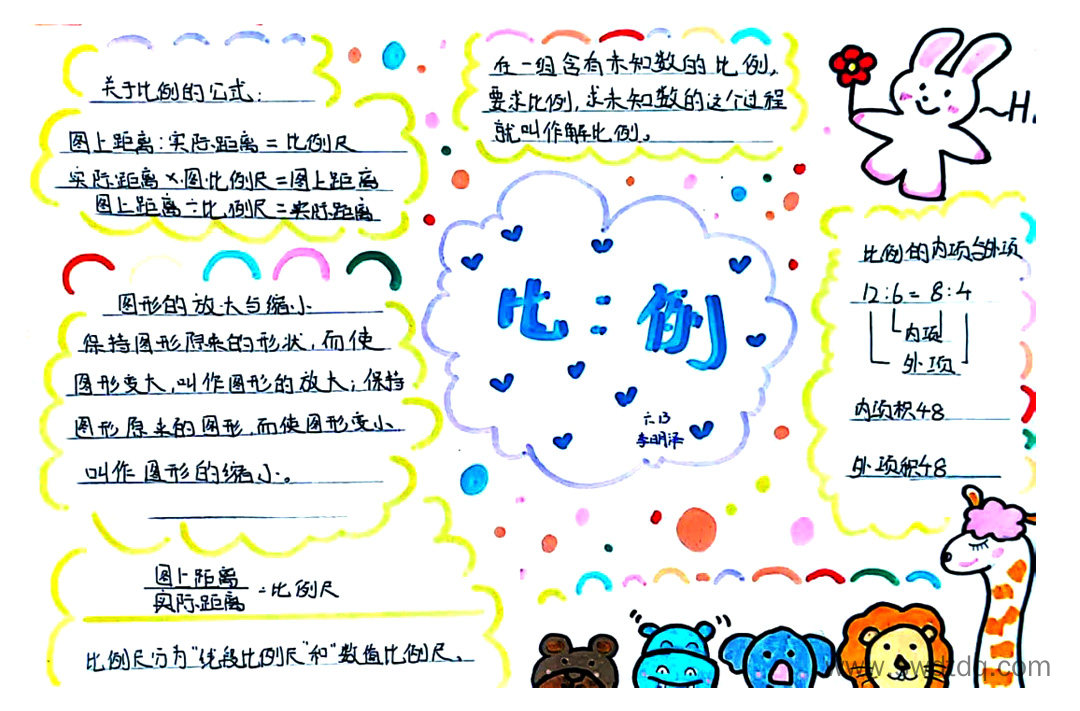 关于比例的公式:
图上距离:实际距离=比例尺
实际距离×图比例尺=图上距离
图上距离÷比例尺=实际距离
图形的放大与缩小
保持图形原来的形状,而使
图形变大,叫作图形的放大;保持
图形原来的图形,而使图形变小
叫作图形的缩小。
图上距离
实际距离
=比例尺
比例尺分为"线段比例尺"和"数值比例尺。
在一组含有未知数的比例,
要求比例,求未知数的这个过程
就叫作解比例。
比:例
六.13
李明泽
~H.
比例的内项与外项
12:6=8:4
内项
外项
内项积48
外项积48